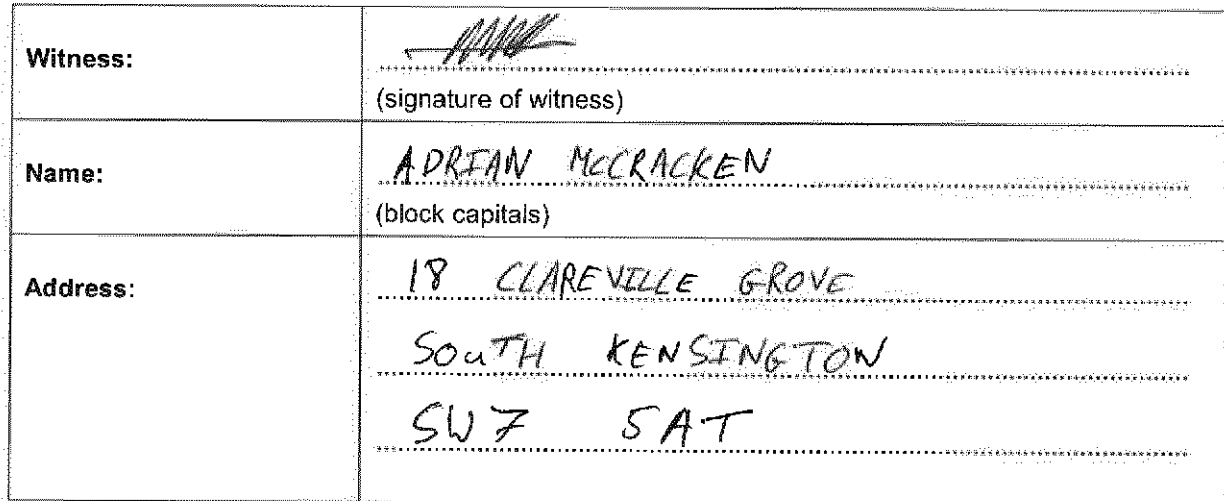 Witness:
(signature of witness)
Name: ADRIAN McCRACKEN
(block capitals)
Address: 18 CLAREVILLE GROVE
SOUTH KENSINGTON
SW7 5AT